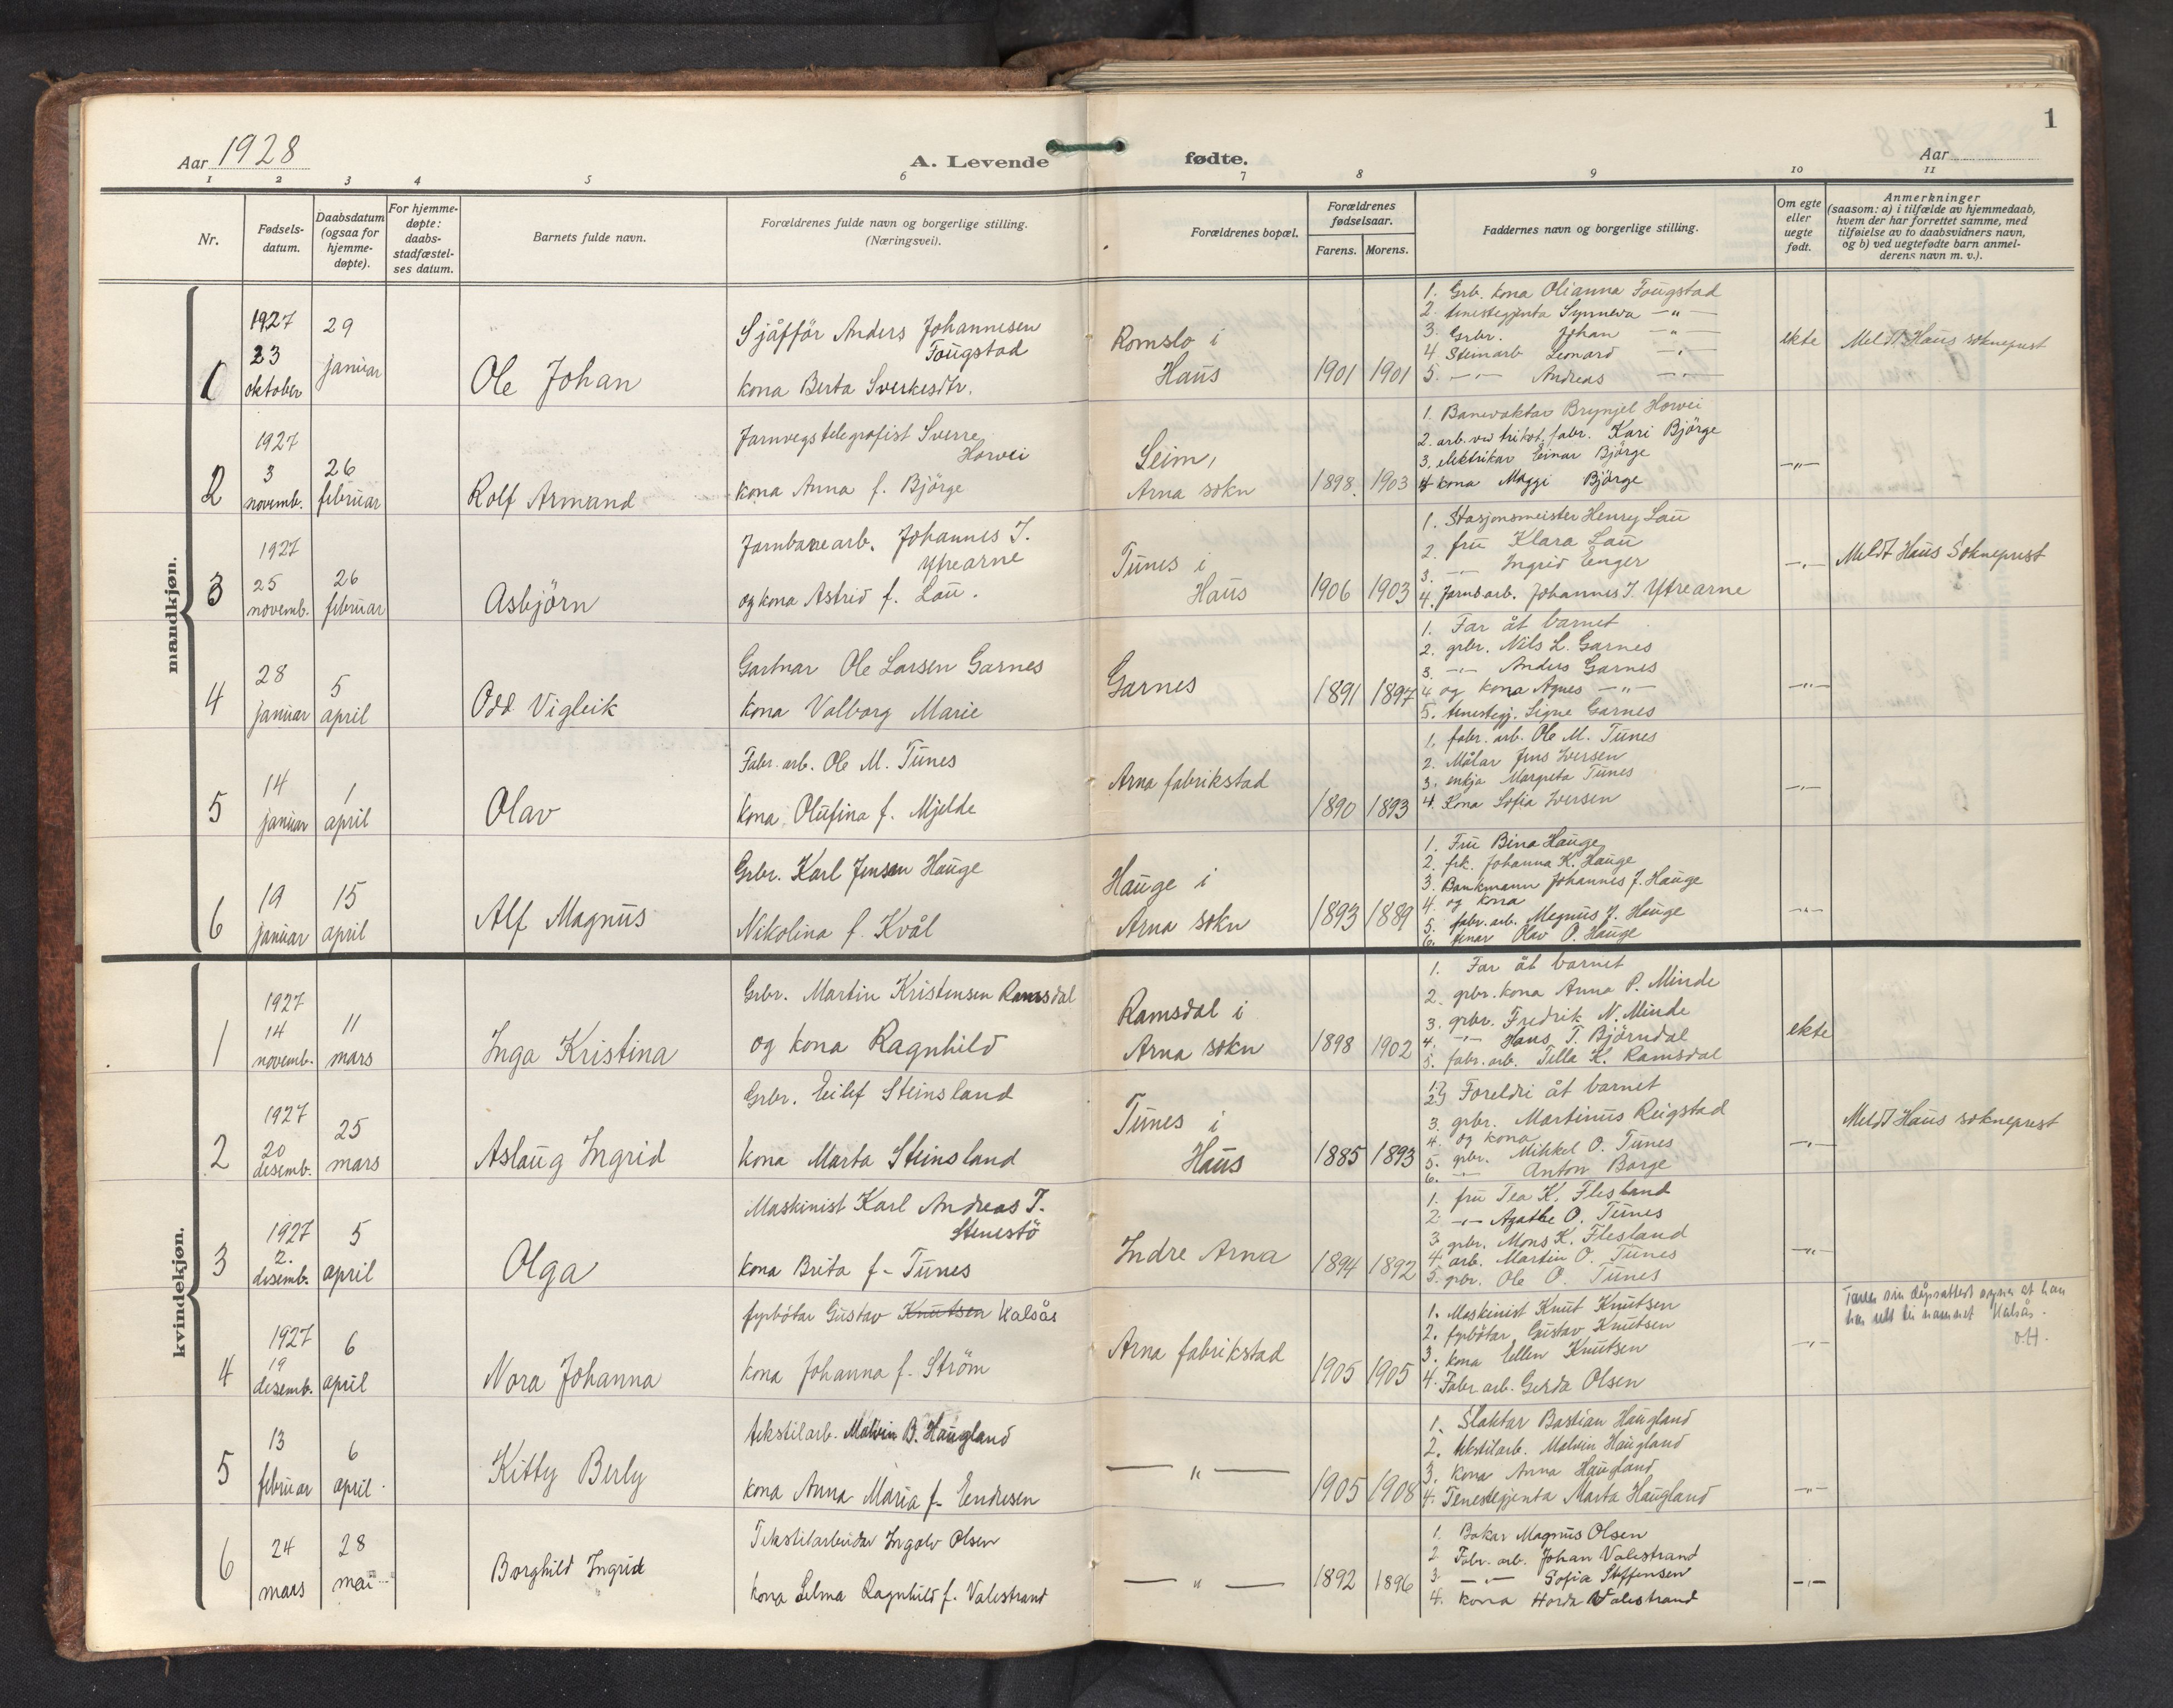 1
Aar 1928
A. Levende fødte.
Aar
1 2 3 4 5 6 7 8 9 10 11
Nr.
Fødsels-
datum.
Daabsdatum
(ogsaa for
hjemme-
døpte).
For hjemme-
døpte:
daabs-
stadfæstel-
ses datum.
Barnets fulde navn.
Forældrenes fulde navn og borgerlige stilling.
(Næringsvei).
Forældrenes bopæl.
Forældrenes
fødselsaar.
Farens. Morens.
Faddernes navn og borgerlige stilling.
Om egte
eller
uegte
født.
Anmerkninger
(saasom: a) i tilfælde av hjemmedaab,
hvem der har forrettet samme, med
tilføielse av to daabsvidners navn,
og b) ved uegtefødte barn anmel-
derens navn m. v.).
mandkjøn.
1
1927
23
oktober
29
januar
Ole Johan
Sjåfför Anders Johannesen
Fougstad
kona Berta Sverkesdtr.
Romslo i
Haus
1901 1901
1. Grb. kona Olianna Fougstad
2. tenestegjenta Synneva —"—
3. Grbr. Johan —"—
4 Steinarb Leonard —"—
5. —"— Andreas —"—
ekte
Meldt Haus sokneprest
2
1927
3
novemb.
26
februar
Rolf Armand
Jarnvegstelegrafist Sverre
Horvei
kona Anna f. Björge
Seim,
Arna sokn
1898. 1903
1. Banevaktar Brynjel Horvei
2. arb. ved trikot. fabr. Kari Björge
3. elektrikar Einar Björge
4 kona Maggi Björge
—"—
3
1927
25
novemb.
26
februar
Asbjörn
Jarnbanearb. Johannes J.
Ytrearne
og kona Astrid f. Lau.
Tunes i
Haus
1906 1903
1. Stasjonsmeister Henry Lau
2. fru Klara Lau
3. —"— Ingrid Enger
4. Jarnbarb. Johannes J. Ytrearne
—"—
Meldt Haus Sokneprest
4
28
januar
5
april
Odd Vigleik
Gartnar Ole Larsen Garnes
kona Valborg Marie
Garnes
1891 1897
1. Far åt barnet
2. grbr. Nils L. Garnes
3. —"— Anders Garnes
4 og kona Agnes —"—
5. tenestegj. Signe Garnes
—"—
5
14
januar
1
april
Olav
Fabr. arb. Ole M. Tunes
kona Olufina f. Mjelde
Arna fabrikstad
1890 1893
1. fabr. arb. Ole M. Tunes
2. Målar Jens Iversen
3. enkja Margreta Tunes
4. Kona Sofia Iversen
—"—
6
19
januar
15
april
Alf Magnus
Grbr. Karl Jensen Hauge
Nikolina f. Kvål
Hauge i
Arna sokn
1893 1889
1. Fru Bina Hauge
2. frk. Johanna K. Hauge
3. Bankmann Johannes J. Hauge
4. og kona
5. fabr. arb. Magnus J. Hauge
6. tenar Olav O. Hauge
—"—
kvindekjøn.
1
1927
14
novemb.
11
mars
Inga Kristina
Grbr. Martin Kristensen Ramsdal
og kona Ragnhild
Ramsdal i
Arna sokn
1898 1902
1. Far åt barnet
2. grbr. kona Anna P. Minde
3. grbr. Fredrik N. Minde
4. —"— Hans T. Björndal
5. fabr. arb. Tilla K. Ramsdal
ekte
2
1927
20
desemb.
25
mars
Aslaug Ingrid
Grbr. Eilef Steinsland
kona Marta Steinsland
Tunes i
Haus
1885 1893
1.
2. Foreldri åt barnet
3. grbr. Martinus Reigstad
4. og kona
5. grbr. Mikkel O. Tunes
6. —"— Anton Borge
—"—
Meldt Haus sokneprest
3
1927
2.
desemb.
5
april
Olga
Maskinist Karl Andreas T.
Stenestö
kona Brita f. Tunes
Indre Arna
1894 1892
1. fru Tea K. Flesland
2. —"— Agathe O. Tunes
3 grbr. Mons K. Flesland
4 arb. Martin O. Tunes
5. grbr. Ole O. Tunes
—"—
4
1927
19
desemb.
6
april
Nora Johanna
fyrbötar Gustav Knutsen Kalsås
kona Johanna f. Ström
Arna fabrikstad
1905 1905
1. Maskinist Knut Knutsen
2. fyrbötar Gustav Knutsen
3. kona Ellen Knutsen
4. Fabr arb. Gerda Olsen
—"—
dåpsattest at han
har rett til namnet Kalsås.
O.H.
5
13
februar
6
april
Kitty Berly
tekstilarb. Malvin B. Haugland
kona Anna Maria f. Endresen
—"—
1905 1908
1. Slaktar Bastian Haugland
2. tekstilarb. Malvin Haugland
3. kona Anna Haugland
4. Tenestegjenta Marta Haugland
—"—
6
24
mars
28
mai
Borghild Ingrid
Tekstilarbeidar Ingolv Olsen
kona Selma Ragnhild f. Valestrand
—"—
1892 1896
1. Bakar Magnus Olsen
2 Fabr. arb. Johan Valestrand
3. —"— Sofia Steffensen
4. kona Horda Valestrand
—"—